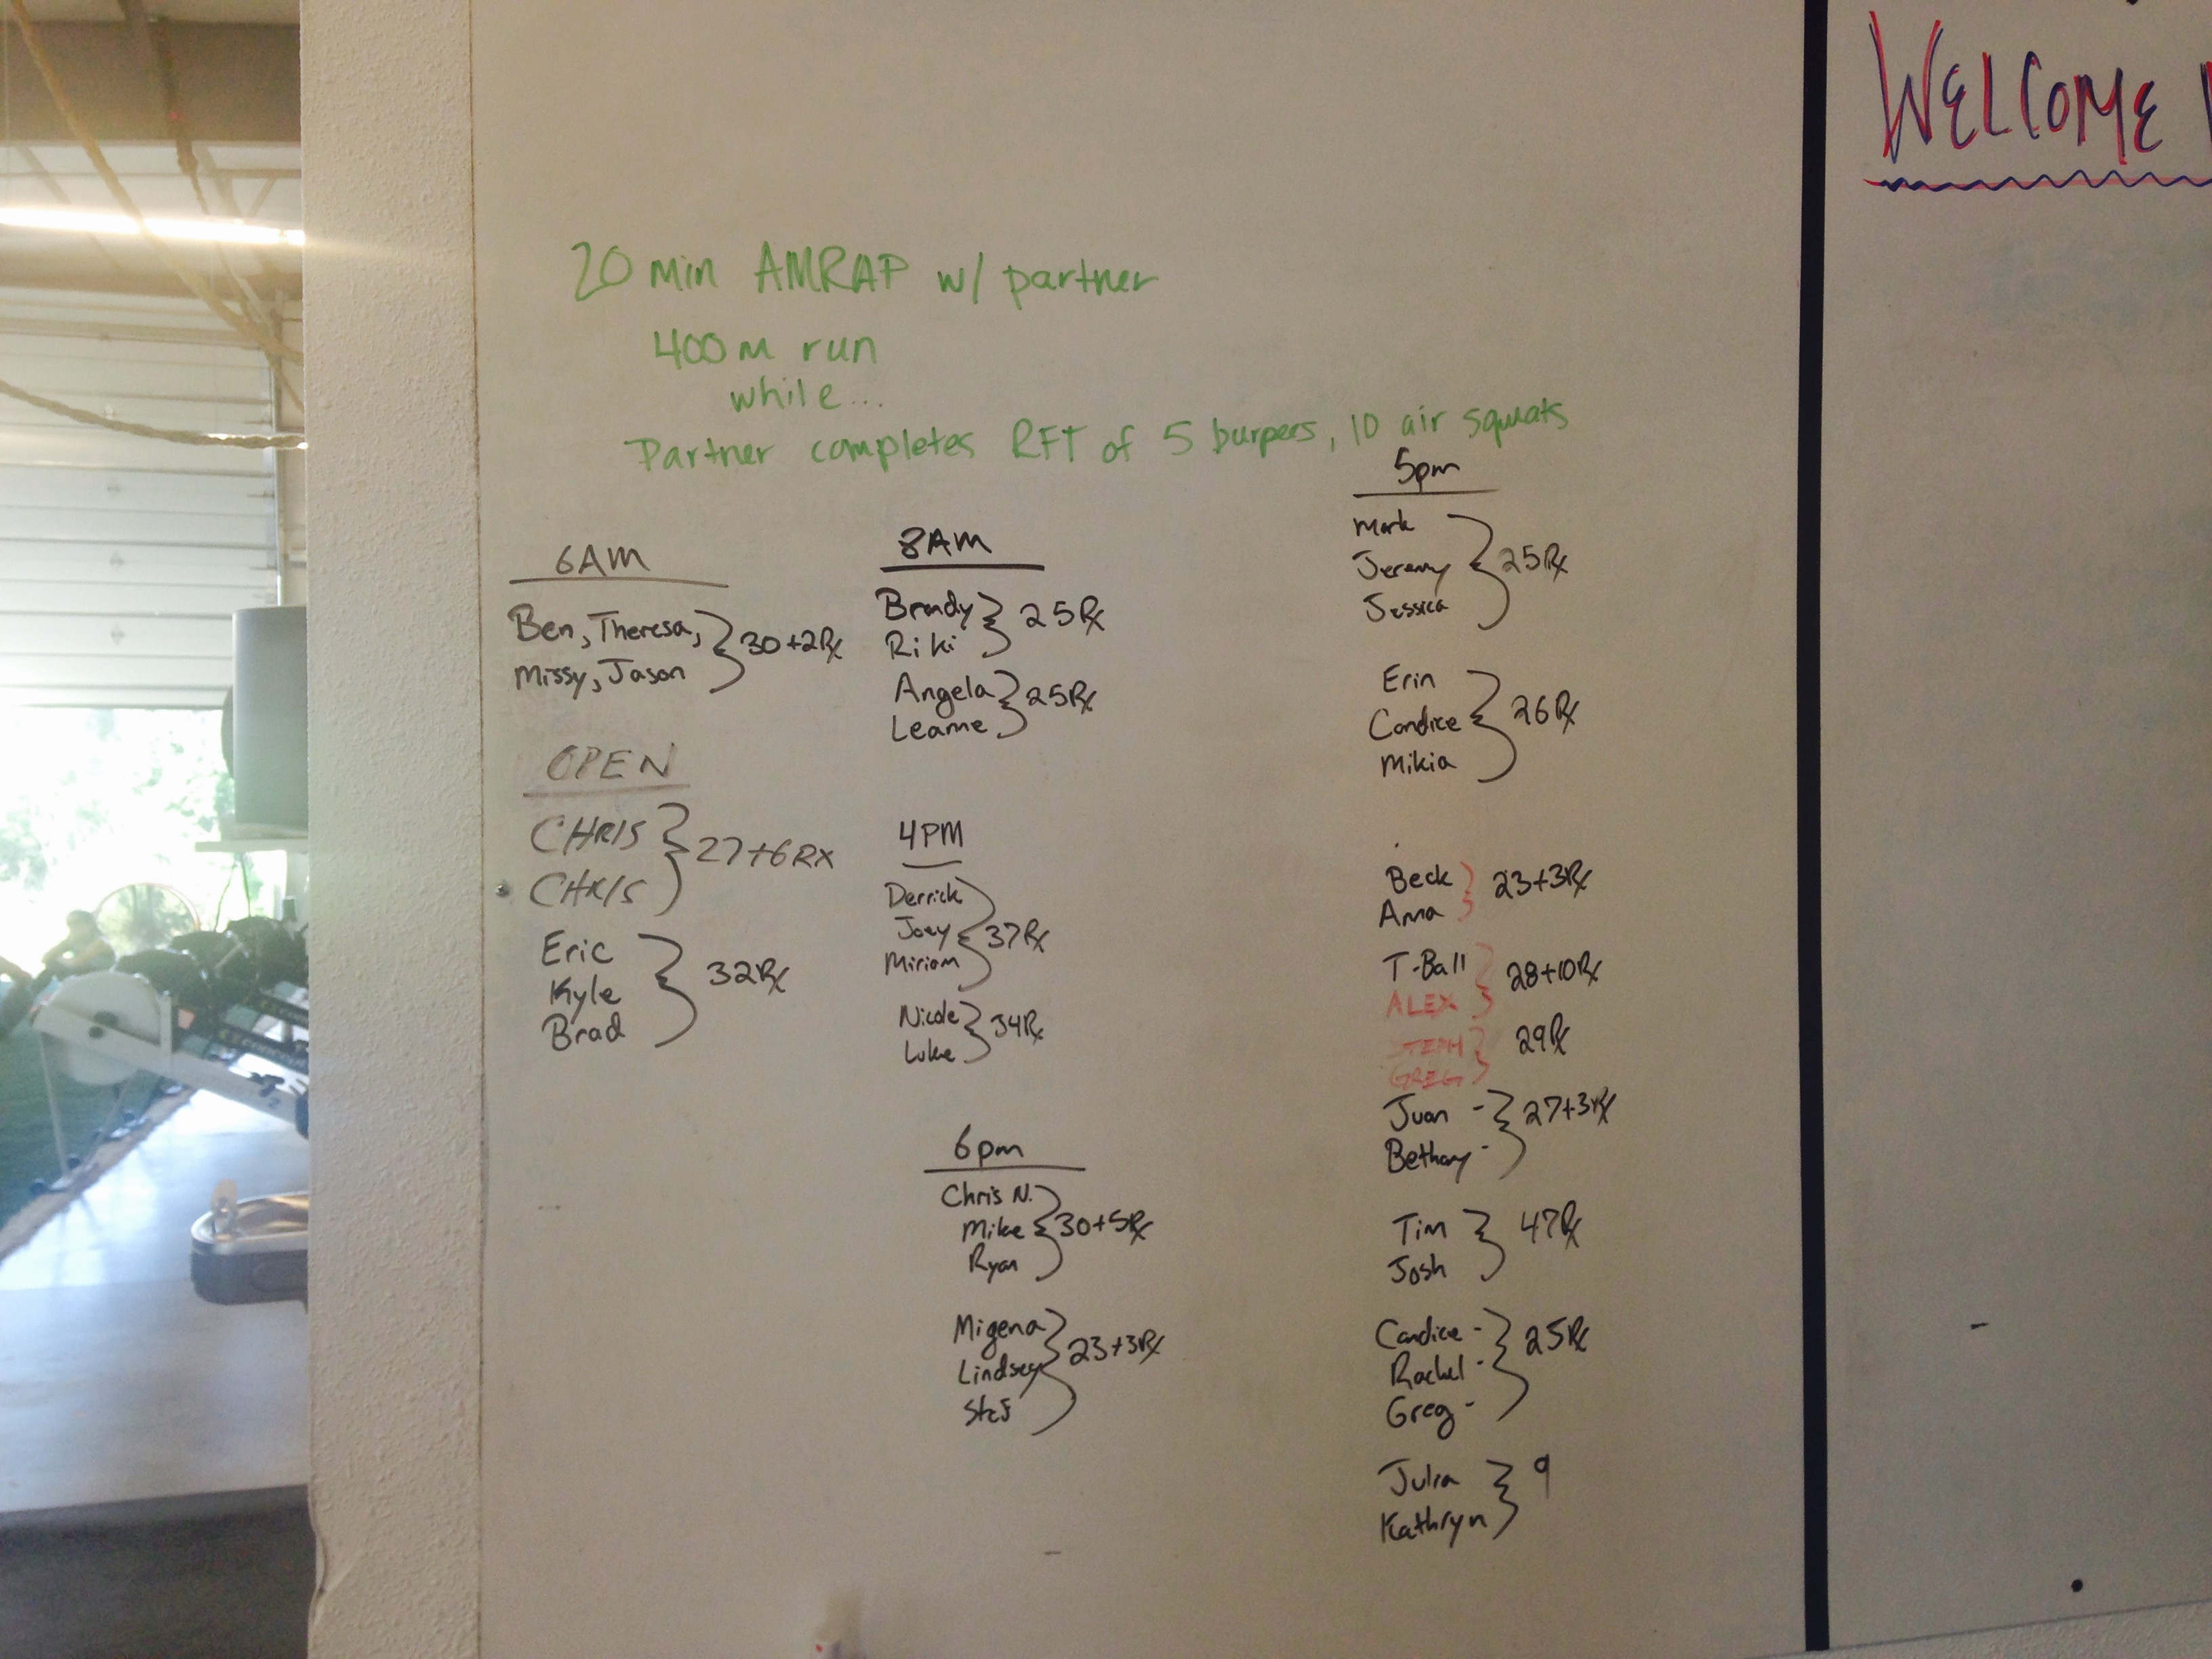 WELCOME
20 min AMRAP w/ partner
400m run
while...
Partner completes RFT of 5 burpees, 10 air squats
6AM
Ben, Theresa,
Missy, Jason
30+2Rx
OPEN
CHRIS
CHRIS
27+6RX
Eric
Kyle
Brad
32Rx
8AM
Brady
Riki
25Rx
Angela
Leanne
25Rx
4PM
Derrick
Joey
Miriam
37Rx
Nicole
Luke
34Rx
6pm
Chris N.
Mike
Ryan
30+5Rx
Migena
Lindsey
23+3Rx
5pm
Mark
Jeremy
Jessica
25Rx
Erin
Candice
Mikia
26Rx
Beck
Anna
23+3Rx
T-Ball
ALEX
28+10Rx
STEPH
GREG
29Rx
Juan -
Bethany -
27+3Rx
Tim
Josh
47Rx
Candice -
Rachel -
Greg -
25Rx
Julia
Kathryn
9